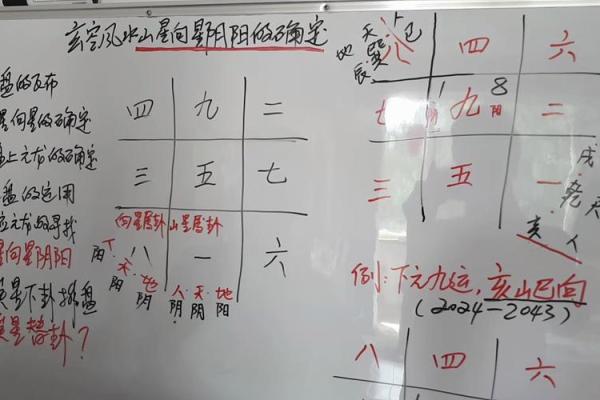 玄空风水山星向星阴阳的确定
盘的瓦布
星向星的确定
盘上元龙的确定
盘的运用
元龙的寻找
星向星阴阳
星下卦排盘
星替卦？
四 九 二
三 五 七
向星居卦 山星居卦
八 一 六
人 天 地
阳 阳 阴
人 天 地
阴 阴 阳
地 天 人
辰 巽 巳
八 四 六
七 1 九 8 二
阳
三 五 一
戌
乾 天
亥 人
例：下元九运，亥山巳向
（2024－2043）
八 四 六